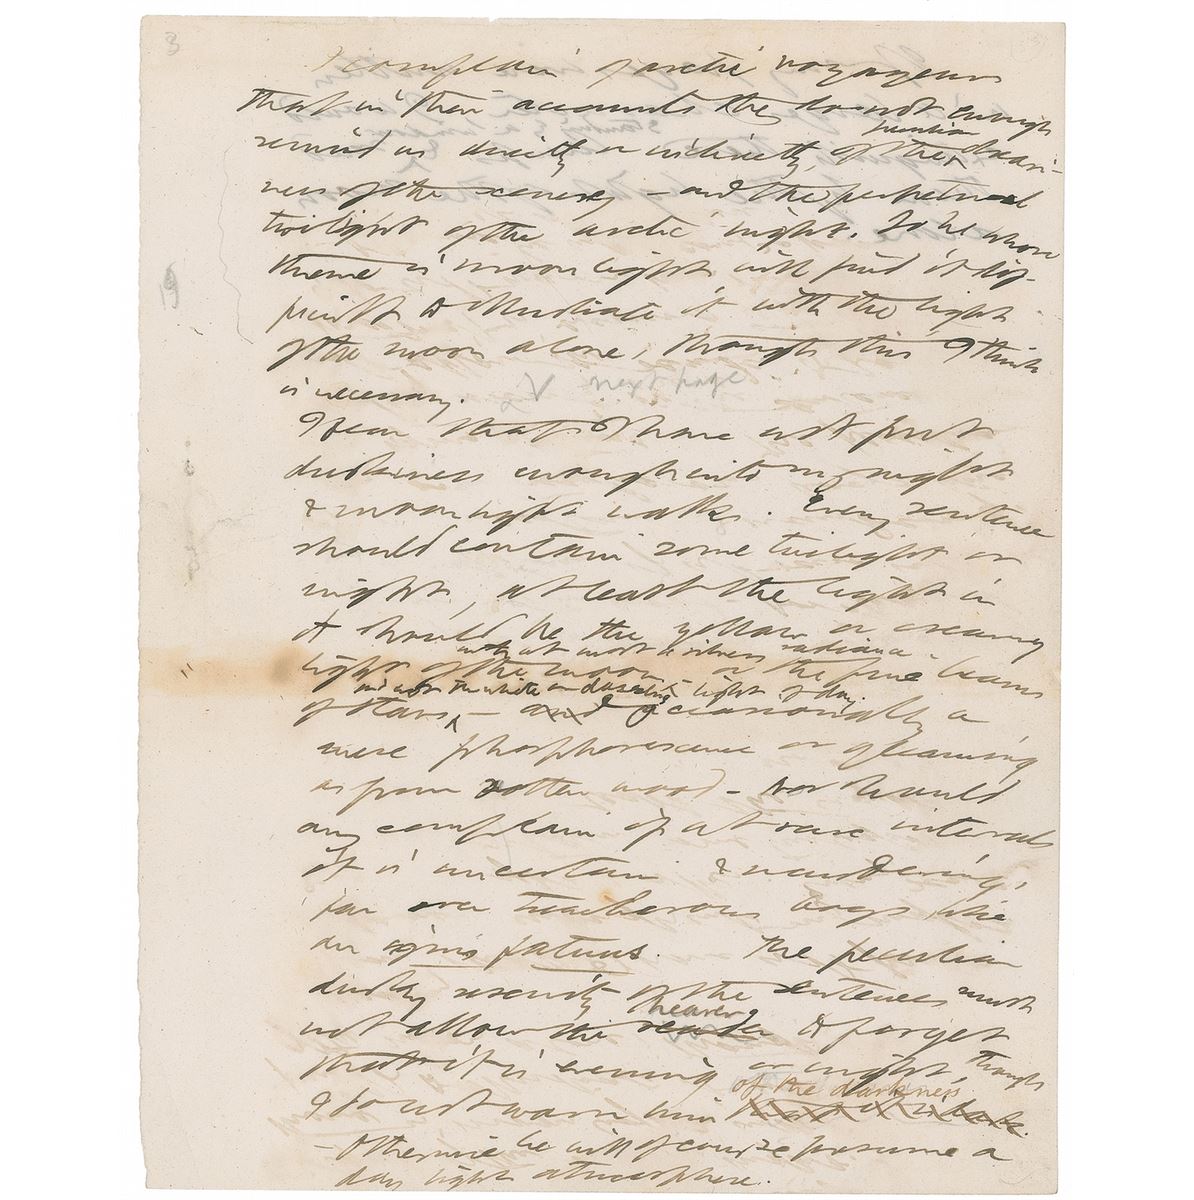 3
I complain of arctic voyagers
that in their accounts they do not enough
remind us directly or indirectly, of the peculiar dreari-
ness of the scenery – and the perpetual
twilight of the arctic night. So he whose
theme is moon light will find it dif-
ficult to illustrate it with the light
of the moon alone, though this I think
is necessary.
next page
I fear that I have not put
duskiness enough into my night
& moonlight walks. Every sentence
should contain some twilight or
night, at least the light in
it should be the yellow or creamy
light of the moon or the fine beams
with at most a silvery radiance
of stars, – and occasionally a
and not the white or dazzling light of day
mere phosphorescence or gleaming
as from rotten wood – Nor would
any complain if at rare intervals
it is uncertain & wandering,
far over treacherous bogs like
an ignis fatuus. The peculiar
dusky serenity of the sentences must
not allow the reader hearer to forget
that it is evening or night, though
I do not warn him of the darkness
– Otherwise he will of course presume a
day light atmosphere.